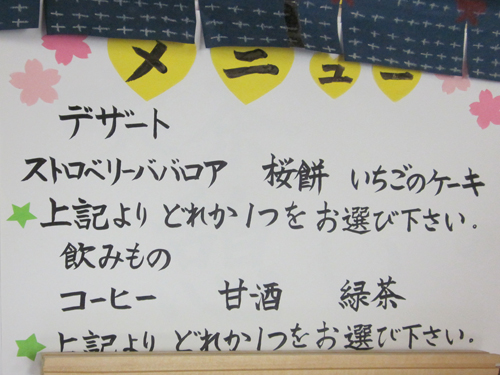 メニュー
デザート
ストロベリーババロア 桜餅 いちごのケーキ
上記より どれか1つを お選び下さい。
飲みもの
コーヒー 甘酒 緑茶
上記より どれか1つを お選び下さい。